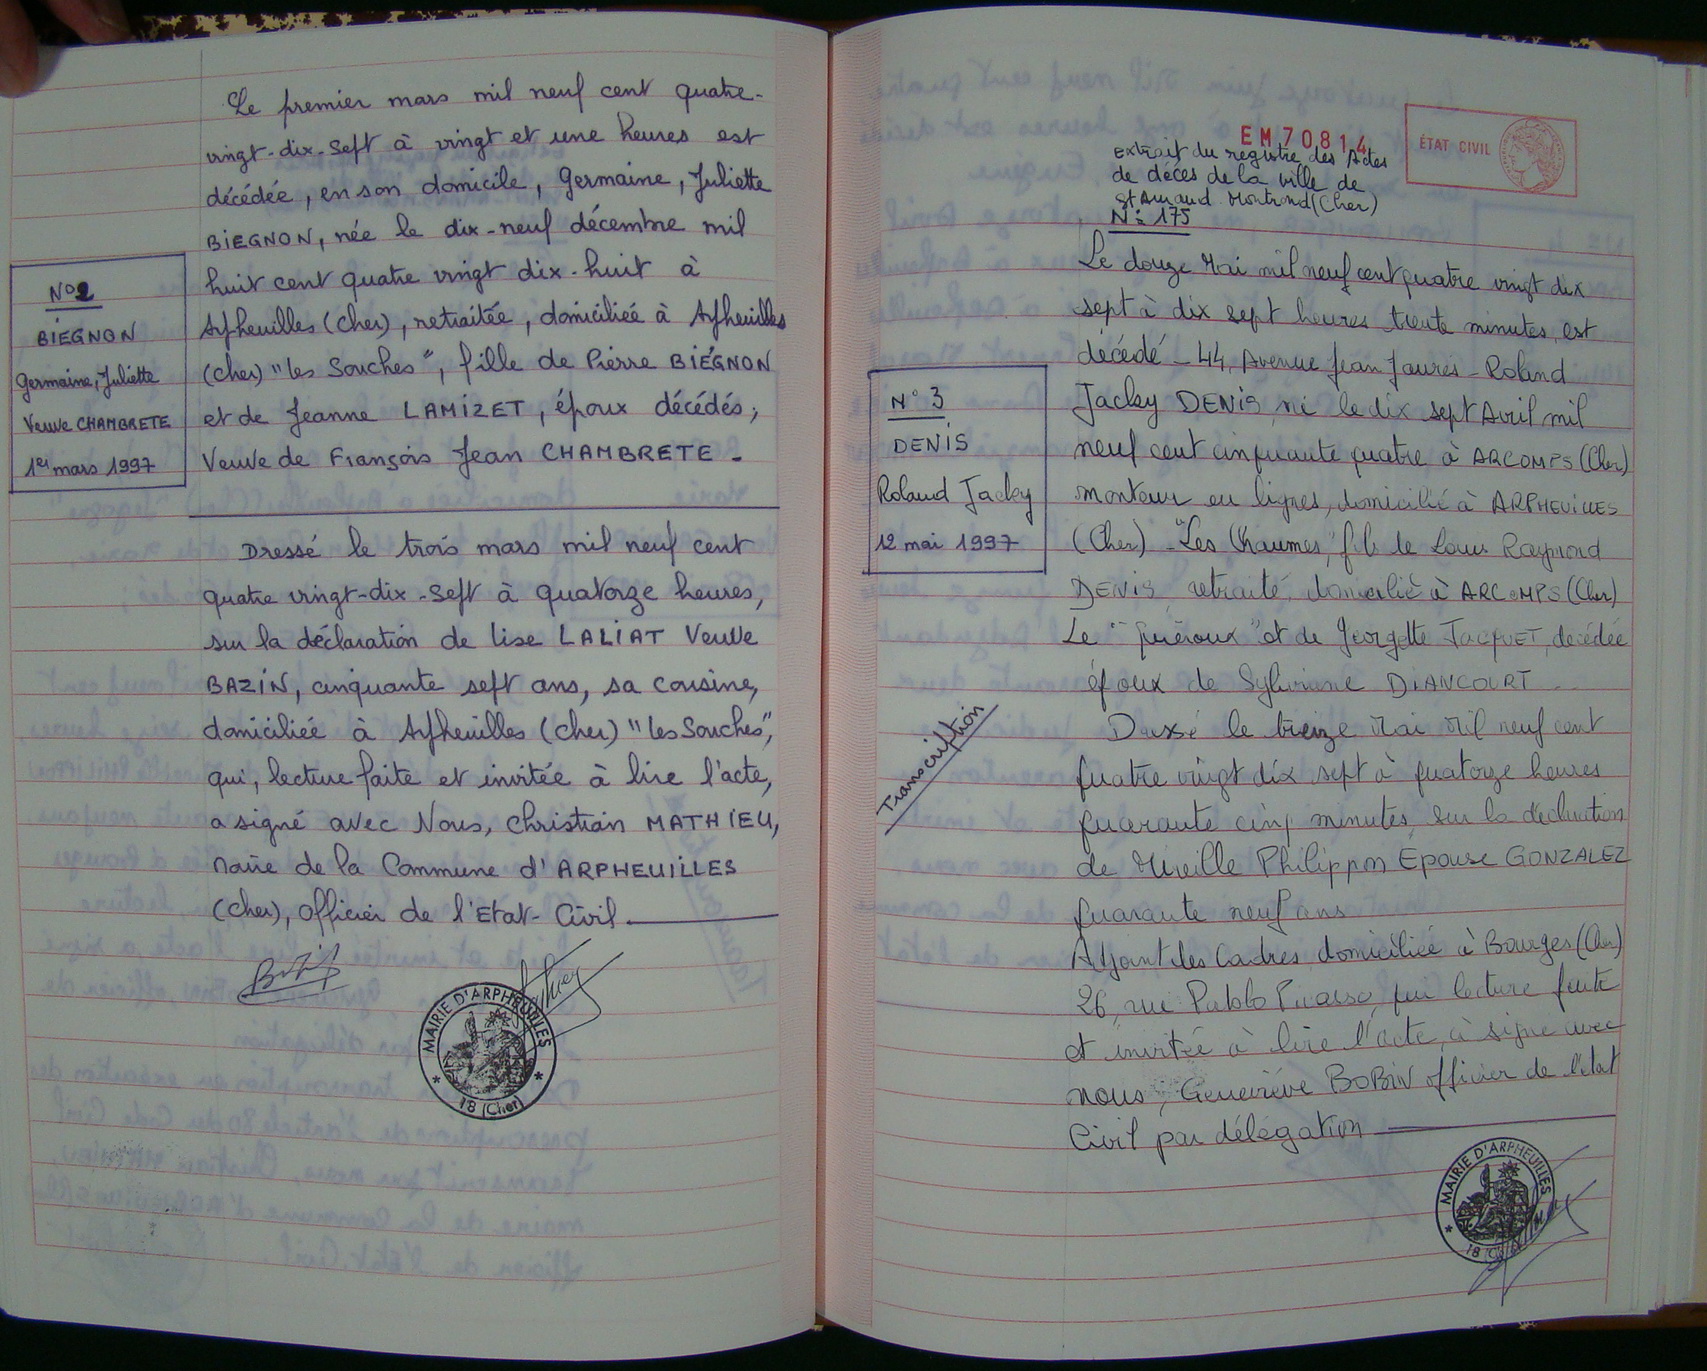 Le premier mars mil neuf cent quatre-
vingt-dix-sept à vingt et une heures est
décédée, en son domicile, Germaine, Juliette
BIEGNON, née le dix-neuf décembre mil
huit cent quatre vingt dix-huit à
Arpheuilles (Cher), retraitée, domiciliée à Arpheuilles
(Cher) "les Souches", fille de Pierre BIEGNON
et de Jeanne LAMIZET, époux décédés,
Veuve de François Jean CHAMBRETE -
N° 2
BIEGNON
Germaine, Juliette
Veuve CHAMBRETE
1er mars 1997
Dressé le trois mars mil neuf cent
quatre vingt-dix-sept à quatorze heures,
sur la déclaration de Lise LALIAT Veuve
BAZIN, cinquante sept ans, sa cousine,
domiciliée à Arpheuilles (Cher) "les Souches",
qui, lecture faite et invitée à lire l'acte,
a signé avec Nous, Christian MATHIEU,
Maire de la Commune d'ARPHEUILLES
(Cher), Officier de l'Etat-Civil
MAIRIE D'ARPHEUILLES
* 18 (Cher) *
EM70814
ÉTAT CIVIL
extrait du registre des Actes
de décès de la ville de
St Amand-Montrond (Cher)
N° 175
Le douze Mai mil neuf cent quatre vingt dix
sept à dix sept heures trente minutes, est
décédé - 44, Avenue Jean Jaurès - Roland
Jacky DENIS, né le dix sept Avril mil
neuf cent cinquante quatre à ARCOMPS (Cher)
monteur en lignes, domicilié à ARPHEUILLES
(Cher) - "Les Chaumes", fils de Louis Raymond
DENIS, retraité, domicilié à ARCOMPS (Cher)
Le "         " et de Georgette JACQUET, décédée
époux de Sylviane DIANCOURT
N° 3
DENIS
Roland Jacky
12 mai 1997
Transcription
Dressé le treize Mai mil neuf cent
quatre vingt dix sept à quatorze heures
quarante cinq minutes, sur la déclaration
de Mireille Philippon Epouse GONZALEZ
quarante neuf ans
Adjoint des Cadres, domiciliée à Bourges (Cher)
26, rue Pablo Picasso, qui lecture faite
et invitée à lire l'acte, a signé avec
nous, Geneviève BOBIN officier de l'état
Civil par délégation
MAIRIE D'ARPHEUILLES
* 18 (Cher)